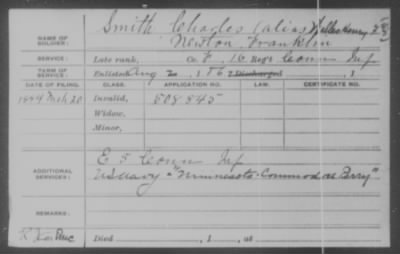 NAME OF SOLDIER: Smith, Charles (alias
Newton, Franklin
SERVICE: Late rank, Co. F, 16 Reg't Conn Inf
TERM OF SERVICE: Enlisted Aug 2, 186 Discharged , 1
DATE OF FILING. CLASS. APPLICATION NO. LAW. CERTIFICATE NO.
1884 Mch 20 Invalid, 508845
Widow,
Minor,
E 5 Conn Inf
ADDITIONAL SERVICES: US Navy "Minnesota-Commodore Perry"
REMARKS:
Died , 1 , at